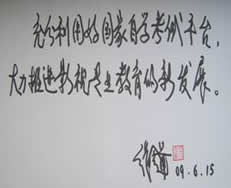 充分利用好国家自学考试平台，
大力推进影视专业教育的新发展。
09.6.15